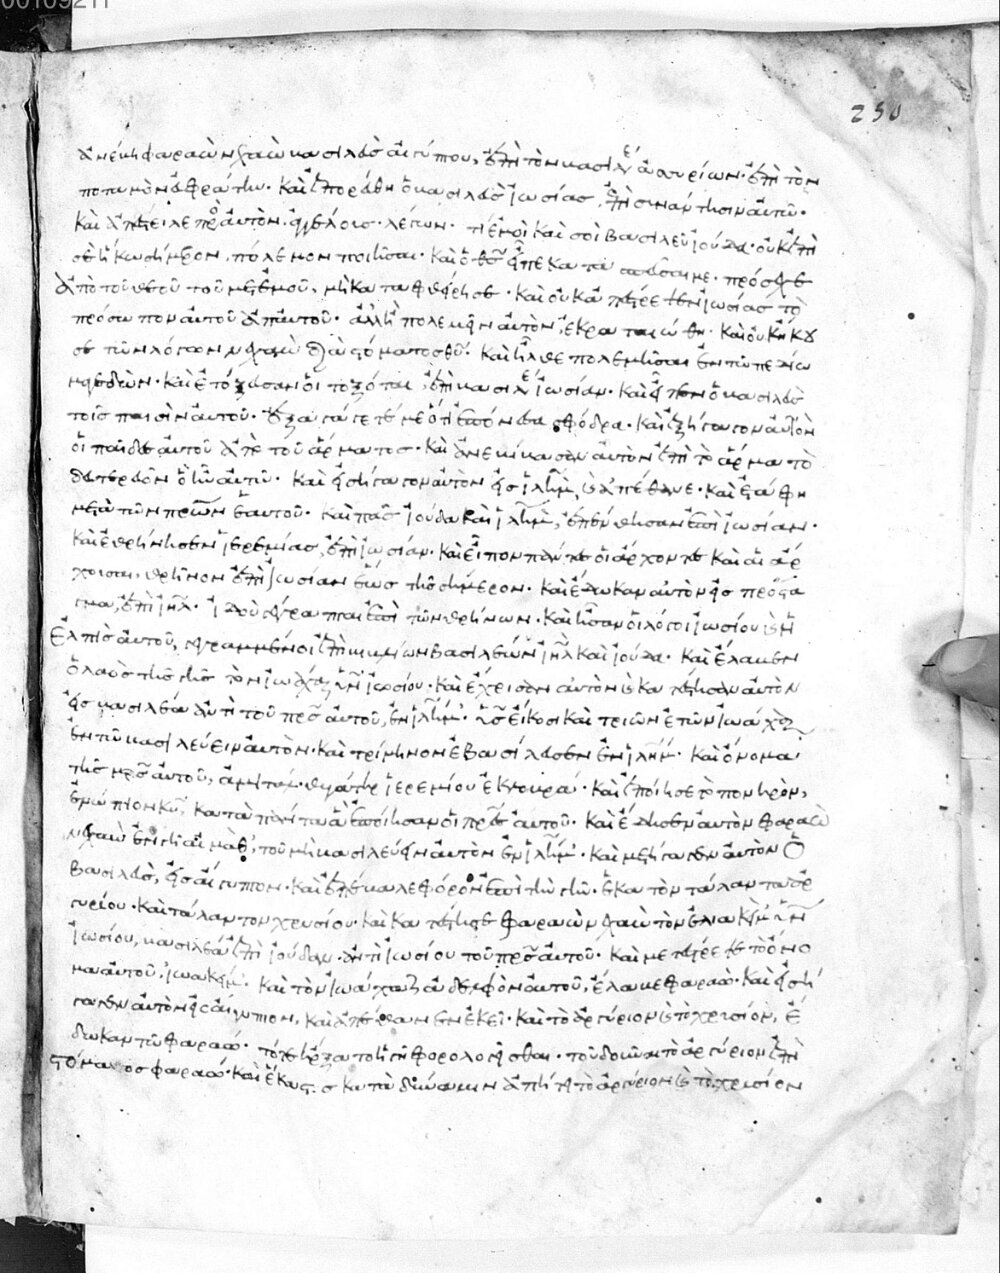 00109211
250
ἀνέβη φαραὼ νεχαὼ βασιλεὺς αἰγύπτου, ἐπὶ τὸν βασιλέα ἀσσυρίων· ἐπὶ τὸν
ποταμὸν εὐφράτην. Καὶ ἐπορεύθη ὁ βασιλεὺς ἰωσίας, εἰς συνάντησιν αὐτῷ.
καὶ ἀπέστειλε πρὸς αὐτὸν ἀγγέλους λέγων· τί ἐμοὶ καὶ σοὶ βασιλεῦ ἰούδα· οὐκ ἐπὶ
σὲ ἥκω σήμερον, πόλεμον ποιῆσαι· καὶ ὁ θς εἶπε κατασπεῦσαί με· πρόσεχε
ἀπὸ τοῦ θεοῦ τοῦ μετ' ἐμοῦ, μὴ καταφθείρῃ σε· καὶ οὐκ ἀπέστρεψεν ἰωσίας τὸ
πρόσωπον αὐτοῦ ἀπ' αὐτοῦ· ἀλλ' ἢ πολεμεῖν αὐτὸν, ἐκραταιώθη· καὶ οὐκ ἤκου
σε τῶν λόγων νεχαὼ διὰ στόματος θυ· καὶ ἦλθε πολεμῆσαι ἐν τῷ πεδίῳ
μαγεδών· καὶ ἐτόξευσαν οἱ τοξόται, ἐπὶ βασιλέα ἰωσίαν· καὶ εἶπεν ὁ βασιλεὺς
τοῖς παισὶν αὐτοῦ· ἐξαγάγετέ με ὅτι ἐπόνεσα σφόδρα· καὶ ἐξήγαγον αὐτὸν
οἱ παῖδες αὐτοῦ ἀπὸ τοῦ ἅρματος· καὶ ἀνεβίβασαν αὐτὸν ἐπὶ τὸ ἅρμα τὸ
δευτερεῦον ὃ ἦν αὐτῷ· καὶ εἰσήγαγον αὐτὸν εἰς ἰλημ, καὶ ἀπέθανε· καὶ ἐτάφη
μετὰ τῶν πρων ἑαυτοῦ· καὶ πᾶς ἰούδα καὶ ἰλημ, ἐπένθησαν ἐπὶ ἰωσίαν·
καὶ ἐθρήνησεν ἰερεμίας, ἐπὶ ἰωσίαν· καὶ εἶπον πάντες οἱ ἄρχοντες καὶ αἱ ἄρ
χουσαι, θρῆνον ἐπὶ ἰωσίαν ἕως τῆς σήμερον· καὶ ἔδωκαν αὐτὸν εἰς πρόστα
γμα, ἐπὶ ιηλ· ἰδοὺ γέγραπται ἐπὶ τῶν θρήνων· καὶ ἦσαν οἱ λόγοι ἰωσίου καὶ ἡ
ἐλπὶς αὐτοῦ, γεγραμμένοι ἐπὶ βιβλίῳ βασιλέων ιηλ καὶ ἰούδα· καὶ ἔλαβεν
ὁ λαὸς τῆς γῆς τὸν ἰωάχαζ υν ἰωσίου· καὶ ἔχρισαν αὐτὸν καὶ κατέστησαν αὐτὸν
εἰς βασιλέα ἀντὶ τοῦ πρς αὐτοῦ, ἐν ἰλημ· υς εἴκοσι καὶ τριῶν ἐτῶν ἰωάχαζ
ἐν τῷ βασιλεύειν αὐτὸν· καὶ τρίμηνον ἐβασίλευσεν ἐν ἰλημ· καὶ ὄνομα
τῆς μρς αὐτοῦ, ἀμιτάλ· θυγάτηρ ἰερεμίου ἐκ λοβνά· καὶ ἐποίησε τὸ πονηρὸν,
ἐνώπιον κυ, κατὰ πάντα ἃ ἐποίησαν οἱ πρες αὐτοῦ· καὶ ἔδησεν αὐτὸν φαραὼ
νεχαὼ ἐν γῇ αἰμάθ, τοῦ μὴ βασιλεύειν αὐτὸν ἐν ἰλημ· καὶ μετήγαγεν αὐτὸν ὁ
βασιλεὺς, εἰς αἴγυπτον· καὶ ἐπέβαλε φόρον ἐπὶ τὴν γῆν· ἑκατὸν τάλαντα ἀρ
γυρίου· καὶ τάλαντον χρυσίου· καὶ κατέστησε φαραὼ νεχαὼ τὸν ἐλιακεὶμ υν
ἰωσίου, βασιλέα ἐπὶ ἰούδαν· ἀντὶ ἰωσίου τοῦ πρς αὐτοῦ· καὶ μετέστρεψε τὸ ὄνο
μα αὐτοῦ, ἰωακείμ· καὶ τὸν ἰωάχαζ ἀδελφὸν αὐτοῦ, ἔλαβε φαραώ· καὶ εἰσή
γαγεν αὐτὸν εἰς αἴγυπτον, καὶ ἀπέθανεν ἐκεῖ· καὶ τὸ ἀργύριον καὶ τὸ χρυσίον, ἔ
δωκαν τῷ φαραώ· τότε ἤρξατο ἡ γῆ φορολογεῖσθαι· τοῦ δοῦναι τὸ ἀργύριον ἐπὶ
στόματος φαραώ· καὶ ἕκαστος κατὰ δύναμιν ἀπῄτει τὸ ἀργύριον καὶ τὸ χρυσίον